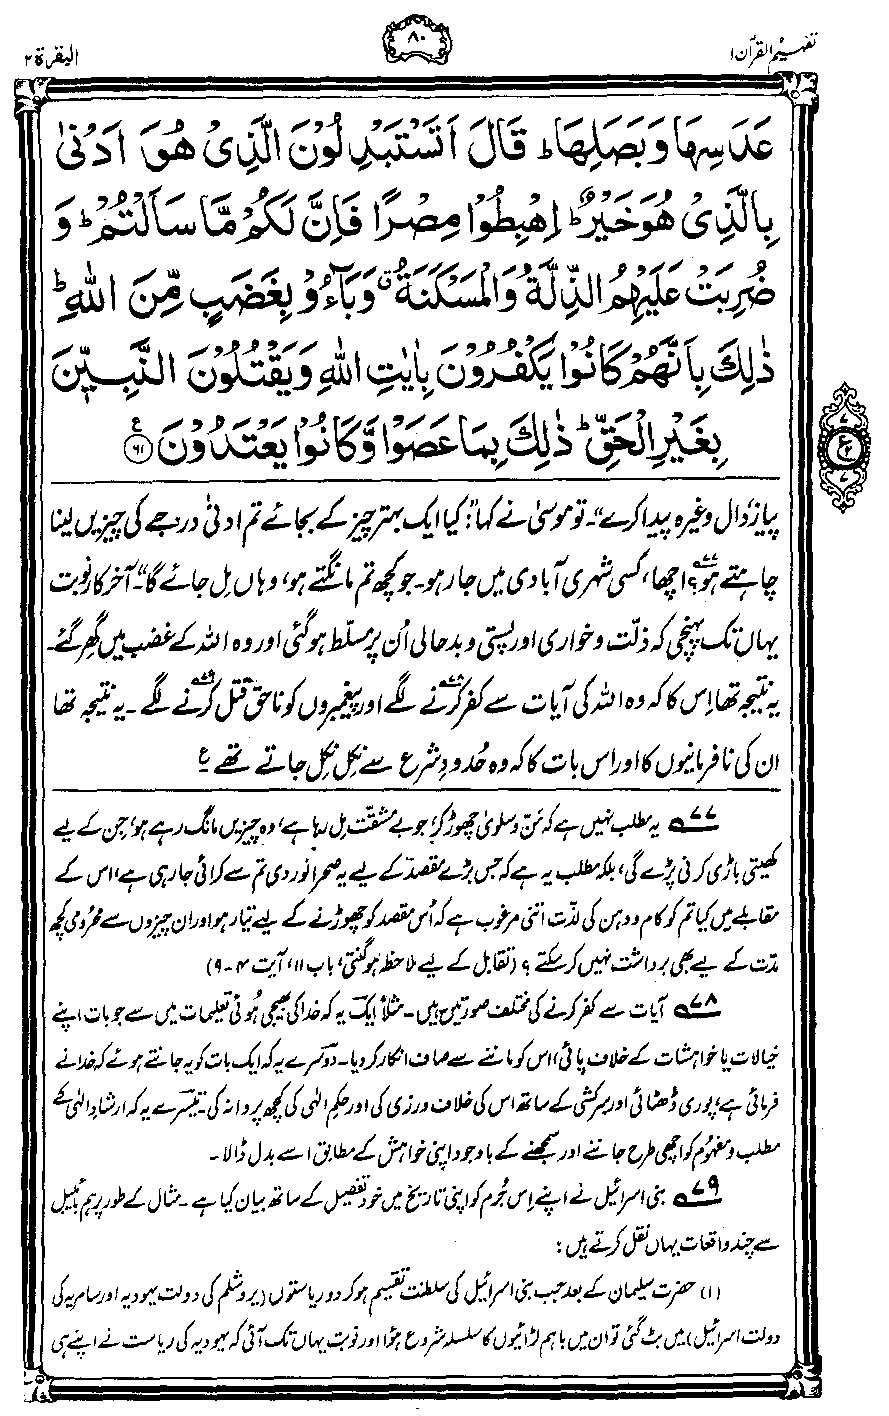 تفہیم القرآن ۱
۸۰
البقرۃ ۲
عَدَسِهَا وَبَصَلِهَا ؕ قَالَ اَتَسْتَبْدِلُوْنَ الَّذِىْ هُوَ اَدْنٰى
بِالَّذِىْ هُوَ خَيْرٌ ؕ اِهْبِطُوْا مِصْرًا فَاِنَّ لَكُمْ مَّا سَاَلْتُمْ ؕ وَ
ضُرِبَتْ عَلَيْهِمُ الذِّلَّةُ وَالْمَسْكَنَةُ ۗ وَبَآءُوْ بِغَضَبٍ مِّنَ اللّٰهِ ؕ
ذٰلِكَ بِاَنَّهُمْ كَانُوْا يَكْفُرُوْنَ بِاٰيٰتِ اللّٰهِ وَيَقْتُلُوْنَ النَّبِيّٖنَ
بِغَيْرِ الْحَقِّ ؕ ذٰلِكَ بِمَا عَصَوْا وَّكَانُوْا يَعْتَدُوْنَ ۶۱ ع
پیاز، دال وغیرہ پیدا کرے“۔ تو موسیٰ نے کہا: ”کیا ایک بہتر چیز کے بجائے تم ادنیٰ درجے کی چیزیں لینا
چاہتے ہو؟۷۷ اچھا، کسی شہری آبادی میں جا رہو۔ جو کچھ تم مانگتے ہو، وہاں مل جائے گا“۔ آخرکار نوبت
یہاں تک پہنچی کہ ذلّت و خواری اور پستی و بدحالی اُن پر مسلط ہو گئی اور وہ اللہ کے غضب میں گھر گئے۔
یہ نتیجہ تھا اِس کا کہ وہ اللہ کی آیات سے کفر کرنے۷۸ لگے اور پیغمبروں کو ناحق قتل کرنے۷۹ لگے۔ یہ نتیجہ تھا
ان کی نافرمانیوں کا اور اس بات کا کہ وہ حُدودِ شرع سے نِکل نِکل جاتے تھے ع
۷۷ یہ مطلب نہیں ہے کہ مَن و سلویٰ چھوڑ کر، جو بے مشقّت مِل رہا ہے، وہ چیزیں مانگ رہے ہو، جن کے لیے
کھیتی باڑی کرنی پڑے گی، بلکہ مطلب یہ ہے کہ جس بڑے مقصد کے لیے یہ صحرا نوردی تم سے کرائی جا رہی ہے، اس کے
مقابلے میں کیا تم کو کام و دہن کی لذّت اتنی مرغوب ہے کہ اُس مقصد کو چھوڑنے کے لیے تیار ہو اور ان چیزوں سے محرومی کچھ
مدّت کے لیے بھی برداشت نہیں کر سکتے؟ (تقابل کے لیے ملاحظہ ہو گنتی، باب ۱۱، آیت ۴-۹)
۷۸ آیات سے کفر کرنے کی مختلف صورتیں ہیں۔ مثلاً ایک یہ کہ خدا کی بھیجی ہُوئی تعلیمات میں سے جو بات اپنے
خیالات یا خواہشات کے خلاف پائی، اس کو ماننے سے صاف انکار کر دیا۔ دوسرے یہ کہ ایک بات کو یہ جانتے ہوئے کہ خدا نے
فرمائی ہے، پوری ڈھٹائی اور سرکشی کے ساتھ اس کی خلاف ورزی کی اور حکمِ الٰہی کی کچھ پروا نہ کی۔ تیسرے یہ کہ ارشادِ الٰہی کے
مطلب و مفہُوم کو اچھی طرح جاننے اور سمجھنے کے باوجود اپنی خواہش کے مطابق اسے بدل ڈالا۔
۷۹ بنی اسرائیل نے اپنے اِس جُرم کو اپنی تاریخ میں خود تفصیل کے ساتھ بیان کیا ہے۔ مثال کے طور پر ہم بائیبل
سے چند واقعات یہاں نقل کرتے ہیں:
(۱) حضرت سلیمان کے بعد جب بنی اسرائیل کی سلطنت تقسیم ہو کر دو ریاستوں (یروشلم کی دولت یہودیہ اور سامریہ کی
دولت اسرائیل) میں بٹ گئی تو ان میں باہم لڑائیوں کا سلسلہ شروع ہُوا اور نوبت یہاں تک آئی کہ یہودیہ کی ریاست نے اپنے ہی